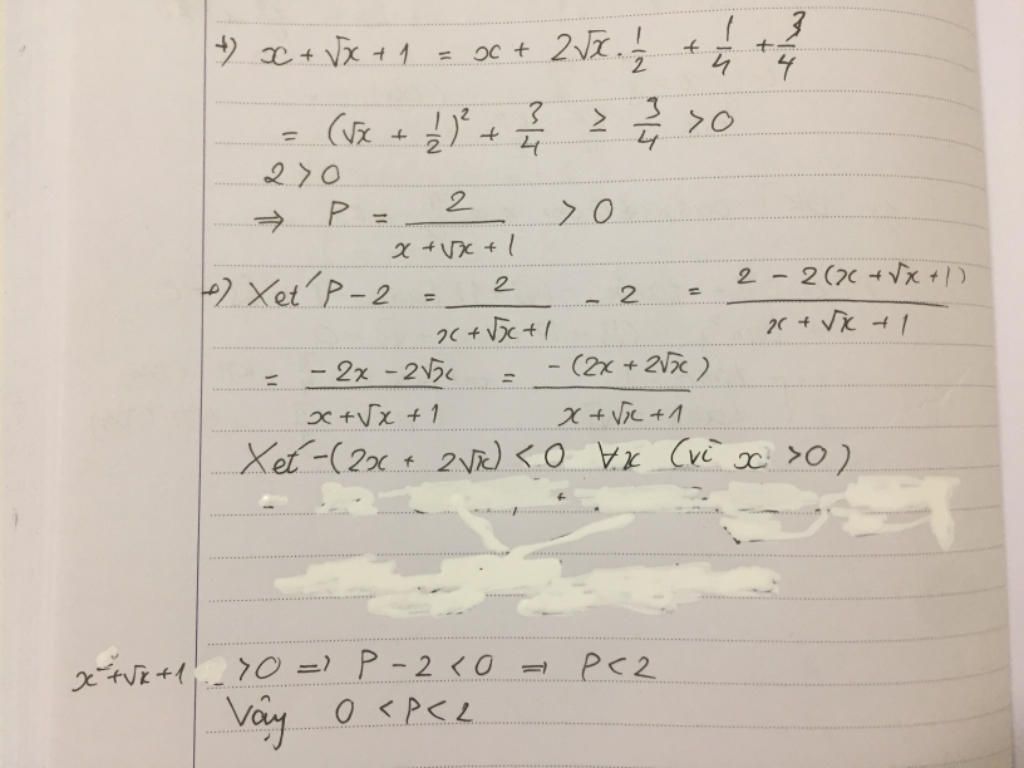 +) x + √x + 1 = x + 2√x . 1/2 + 1/4 + 3/4
= (√x + 1/2)² + 3/4 ≥ 3/4 > 0
2 > 0
⇒ P = 2/(x + √x + 1) > 0
+) Xét P - 2 = 2/(x + √x + 1) - 2 = (2 - 2(x + √x + 1))/(x + √x + 1)
= (-2x - 2√x)/(x + √x + 1) = (-(2x + 2√x))/(x + √x + 1)
Xét -(2x + 2√x) < 0 ∀x (vì x > 0)
x + √x + 1 > 0 => P - 2 < 0 => P < 2
Vậy 0 < P < 2